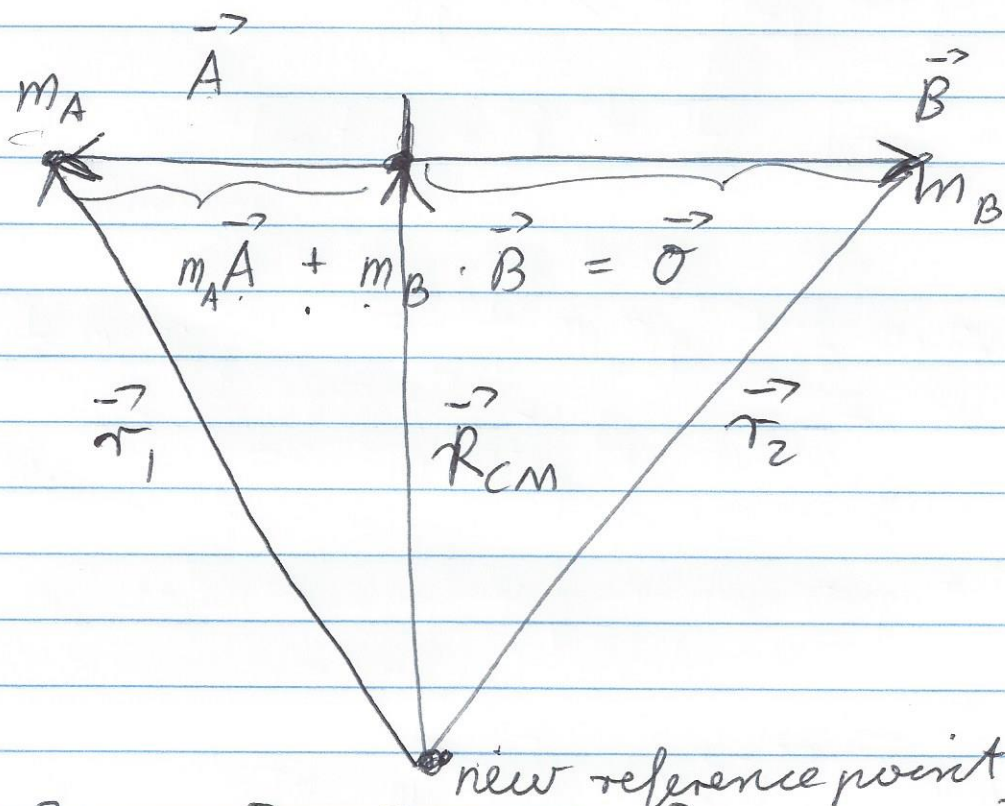 m_A \vec{A} \vec{B}
m_B
m_A \vec{A} + m_B · \vec{B} = \vec{0}
\vec{r}_1 \vec{R}_{CM} \vec{r}_2
new reference point